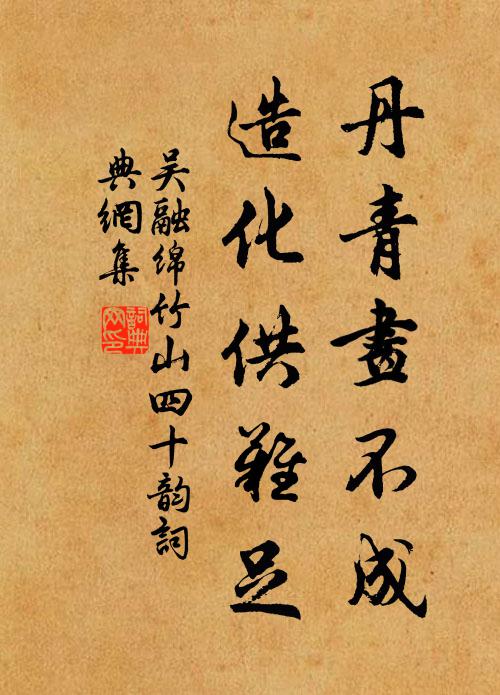 丹青畫不成
造化供難足
吴融绵竹山四十韵詞
典網集
詞典
网印